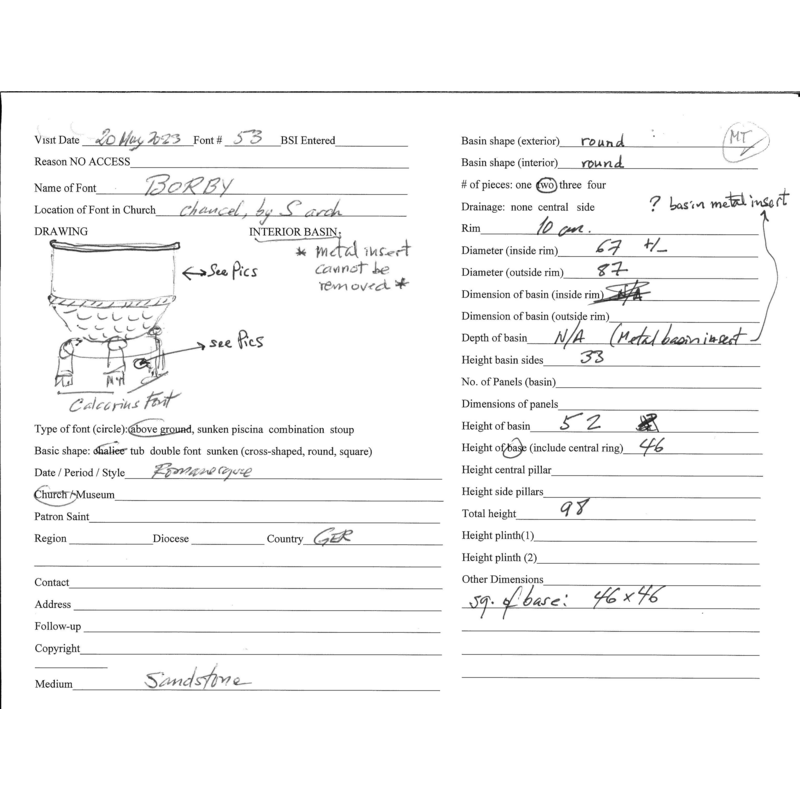 Visit Date 20 May 2023 Font # 53 BSI Entered
Reason NO ACCESS
Name of Font BORBY
Location of Font in Church chancel, by S arch
DRAWING INTERIOR BASIN:
* metal insert
cannot be
removed *
see Pics
see Pics
Calcarius Font
Type of font (circle): above ground, sunken piscina combination stoup
Basic shape: chalice tub double font sunken (cross-shaped, round, square)
Date / Period / Style Romanesque
Church / Museum
Patron Saint
Region Diocese Country GER
Contact
Address
Follow-up
Copyright
Medium Sandstone
MT
Basin shape (exterior) round
Basin shape (interior) round
# of pieces: one two three four
Drainage: none central side ? basin metal insert
Rim 10 cm.
Diameter (inside rim) 67 +/-
Diameter (outside rim) 87
Dimension of basin (inside rim) N/A
Dimension of basin (outside rim)
Depth of basin N/A (Metal basin insert
Height basin sides 33
No. of Panels (basin)
Dimensions of panels
Height of basin 52
Height of base (include central ring) 46
Height central pillar
Height side pillars
Total height 98
Height plinth(1)
Height plinth (2)
Other Dimensions
sq. of base: 46 x 46